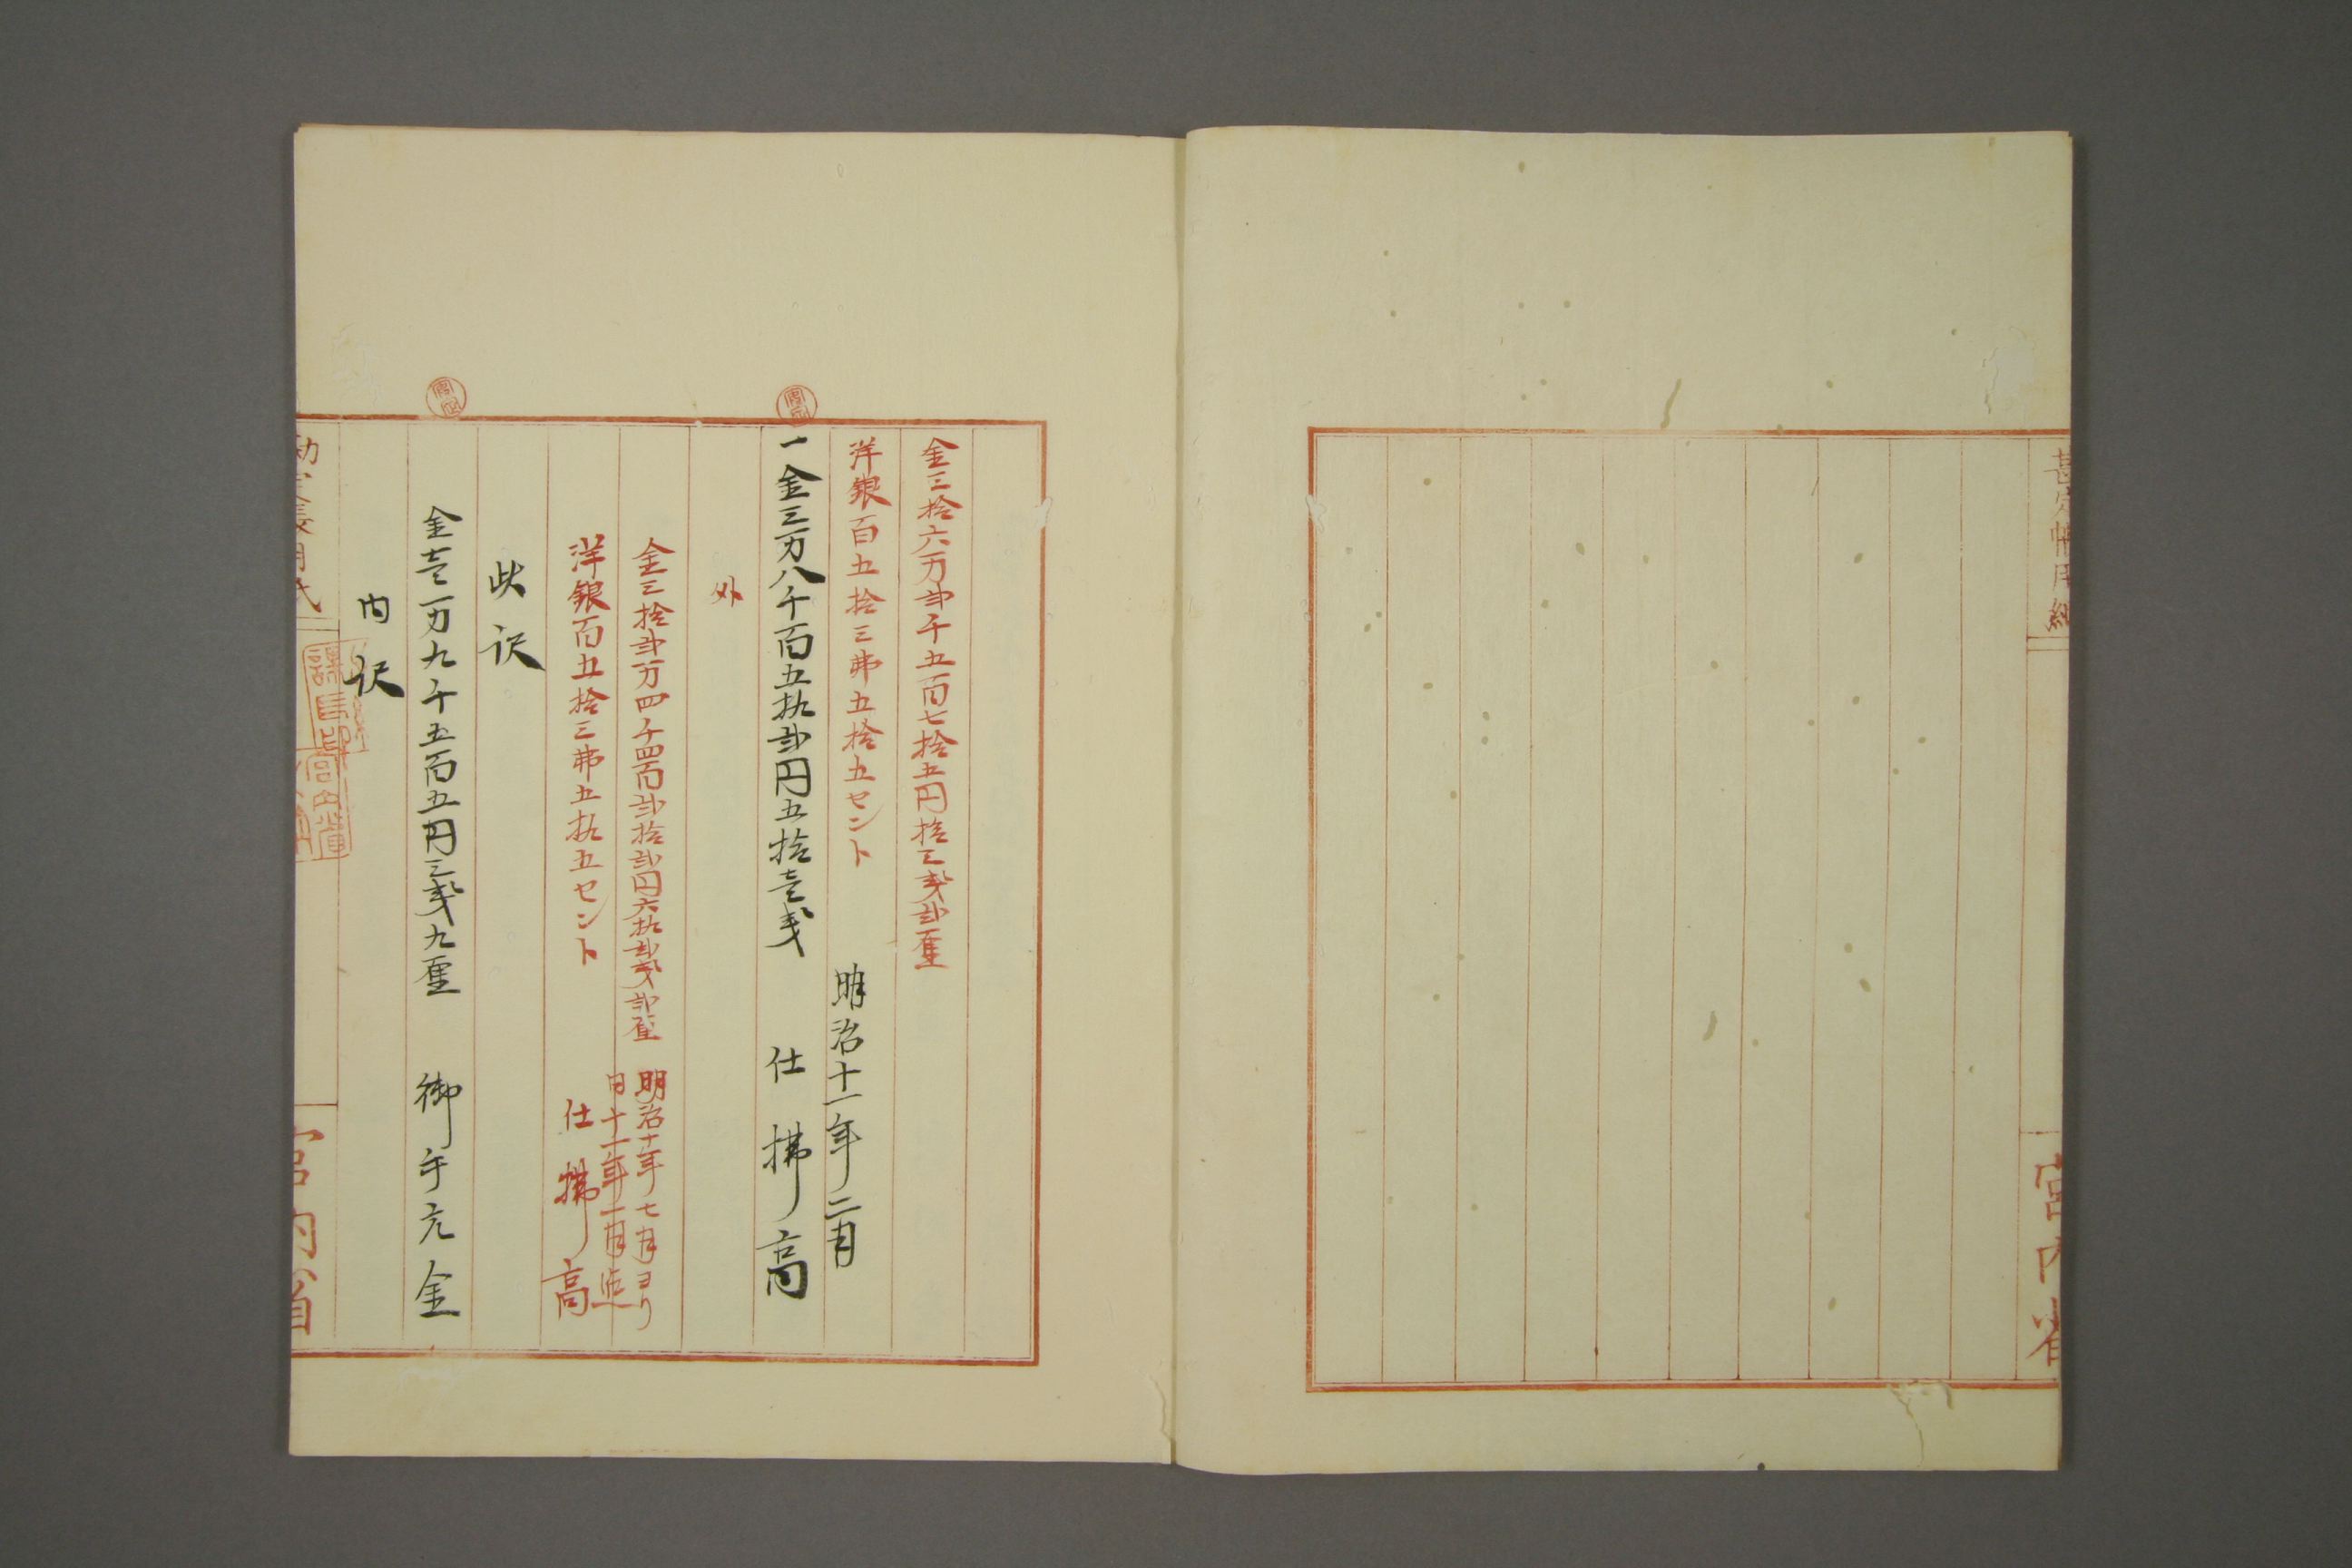 勘定帳用紙
宮内省
金三拾六万弐千五百七拾五円拾三銭弐厘
洋銀百五拾三弗五拾五セント
明治十一年二月
一金三万八千百五拾弐円五拾壱銭 仕拂高
外
金三拾弐万四千四百弐拾弐円六拾弐銭弐厘
明治十年七月ヨリ
同十一年一月迠
洋銀百五拾三弗五拾五セント 仕拂高
此訳
金壱万九千五百五円三銭九厘 御手元金
内訳
勘定帳用紙
宮内省